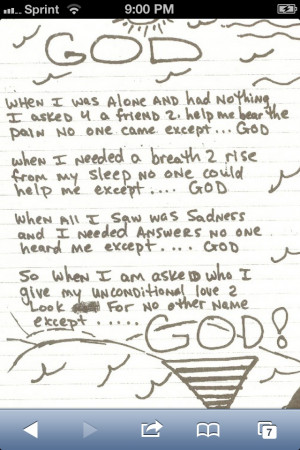 Sprint 9:00 PM
GOD
WHEN I WAS ALONE AND HAD NOTHING
I ASKED 4 A FRIEND 2. HELP ME BEAR THE
PAIN NO ONE CAME EXCEPT... GOD
WHEN I NEEDED A BREATH 2 RISE
FROM MY SLEEP NO ONE COULD
HELP ME EXCEPT.... GOD
WHEN ALL I SAW WAS SADNESS
AND I NEEDED ANSWERS NO ONE
HEARD ME EXCEPT.... GOD
SO WHEN I AM ASKED WHO I
GIVE MY UNCONDITIONAL LOVE 2
LOOK FOR NO OTHER NAME
EXCEPT.....
GOD!
7